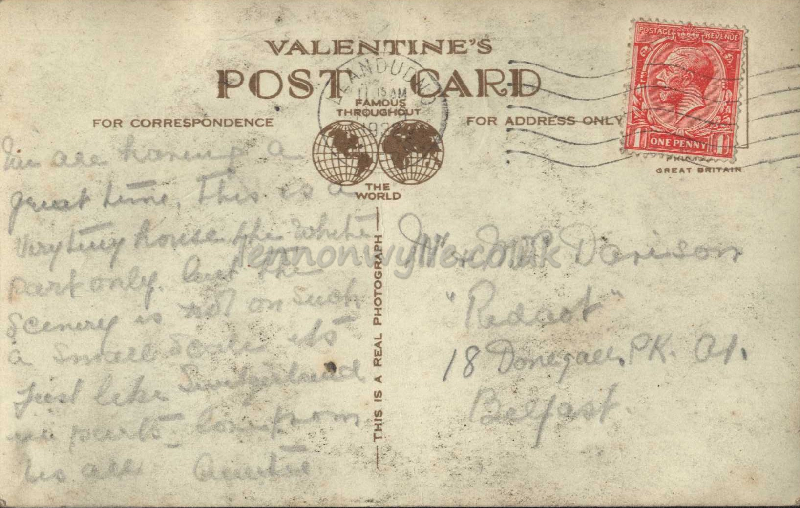 VALENTINE'S
POST CARD
LLANDUDNO
11 15 AM
FAMOUS
THROUGHOUT
THE
WORLD
FOR CORRESPONDENCE
FOR ADDRESS ONLY
POSTAGE REVENUE
ONE PENNY
GREAT BRITAIN
THIS IS A REAL PHOTOGRAPH
We are having a
great time, This is a
very tiny house the White
part only but the
scenery is not on such
a small scale its
just like Switzerland
in parts love from
us all Auntie
Davison
18 Donegall PK. Av.
Belfast.